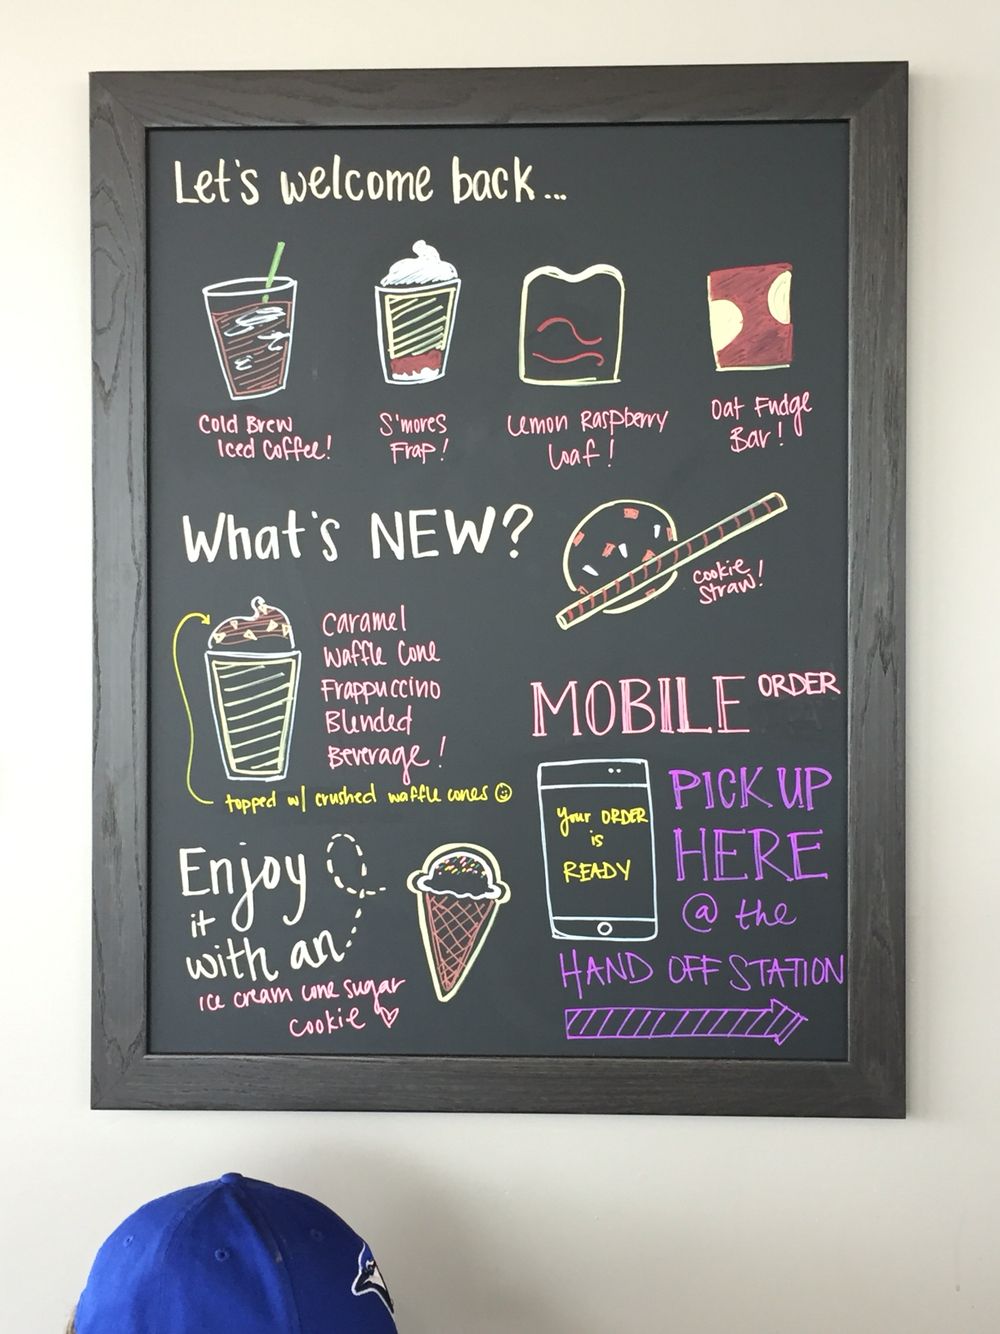 Let's welcome back...
Cold Brew
Iced Coffee!
S'mores
Frap!
Lemon Raspberry
Loaf!
Oat Fudge
Bar!
What's NEW?
Cookie
Straw!
Caramel
Waffle Cone
Frappuccino
Blended
Beverage!
topped w/ crushed waffle cones ☺
MOBILE ORDER
Your ORDER
is
READY
PICK UP
HERE
@ the
HAND OFF STATION
Enjoy
it
with an
ice cream cone sugar
cookie ♡